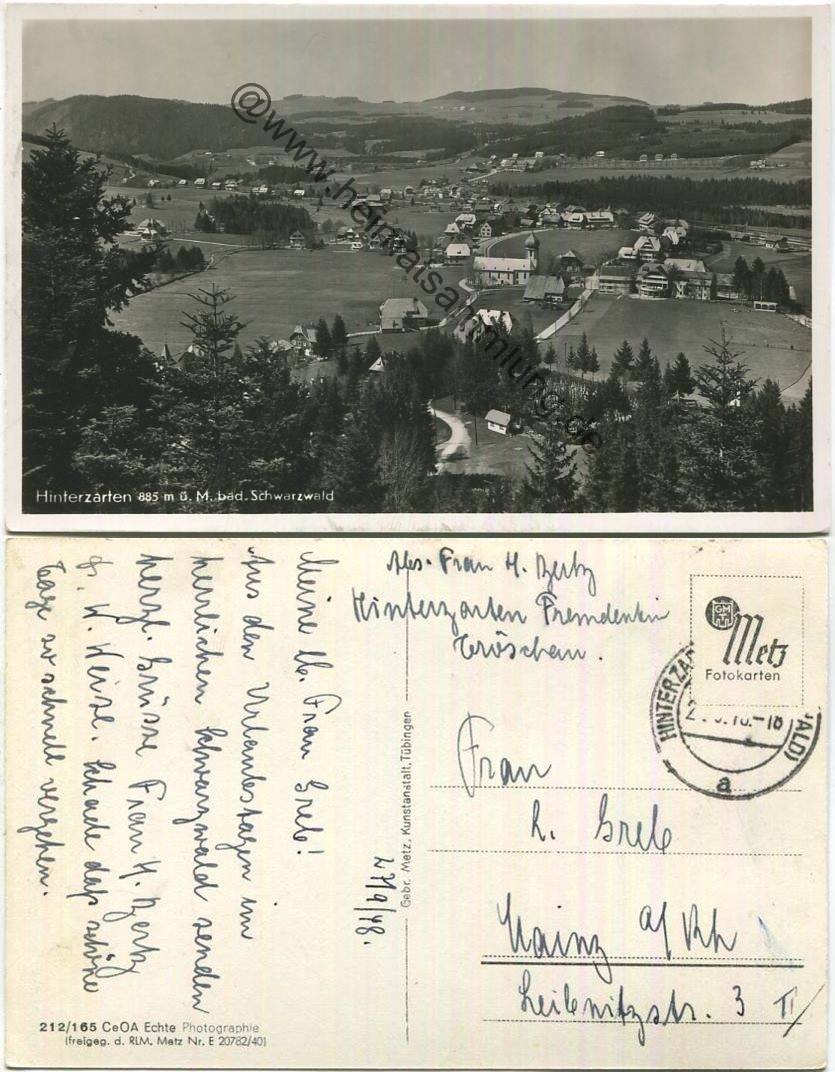 @www.heimatsammlung.de
Hinterzarten 885 m ü. M. bad. Schwarzwald
Meine lb. Frau Greb!
Aus den Urlaubstagen im
herrlichen Schwarzwald senden
herzl. Grüsse Frau H.
W. Weise. Schade daß schöne
Tage so schnell vergehen.
27/9/48.
212/165 CeOA Echte Photographie
(freigeg. d. RLM. Metz Nr. E 20782/40)
Gebr. Metz, Kunstanstalt, Tübingen
Abs. Frau H.
Hinterzarten Fremdenheim
GM
Metz
Fotokarten
HINTERZAR
ALD)
a
Frau
Greb
Mainz a/Rh
Leibnitzstr. 3 II